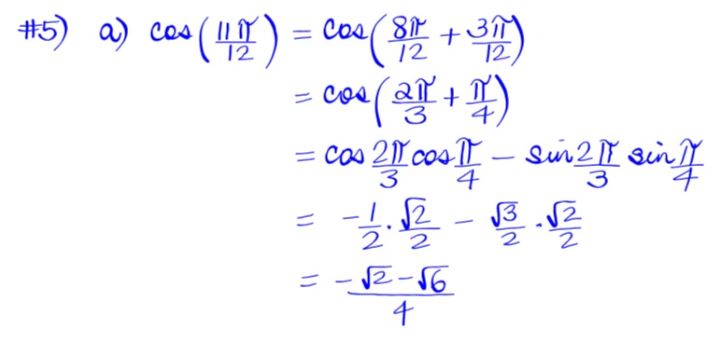 #5) a) cos(11π/12) = cos(8π/12 + 3π/12)
= cos(2π/3 + π/4)
= cos 2π/3 cos π/4 − sin 2π/3 sin π/4
= -1/2 · √2/2 − √3/2 · √2/2
= -√2 − √6 / 4